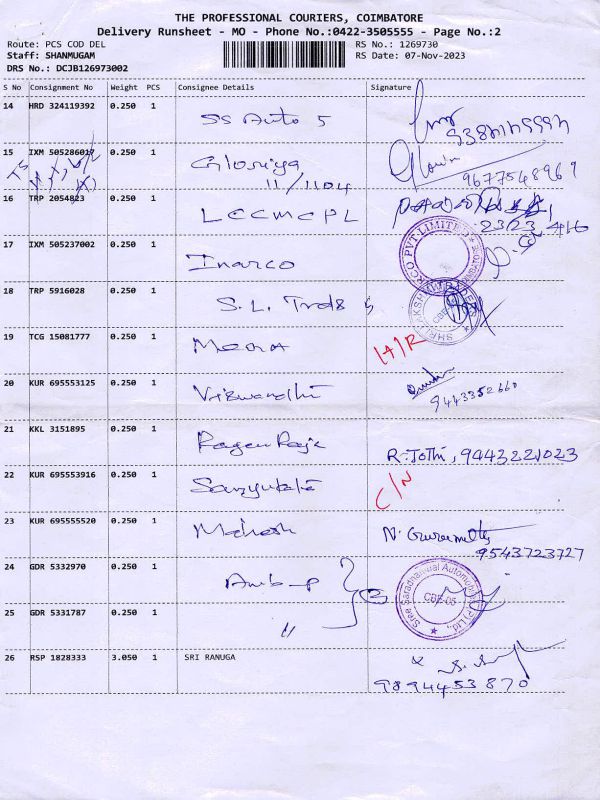 THE PROFESSIONAL COURIERS, COIMBATORE
Delivery Runsheet - MO - Phone No.:0422-3505555 - Page No.:2
Route: PCS COD DEL
RS No.: 1269730
Staff: SHANMUGAM
RS Date: 07-Nov-2023
DRS No.: DCJB126973002
S No Consignment No Weight PCS Consignee Details Signature
14 HRD 324119392 0.250 1 SS Auto 5
15 IXM 505286017 0.250 1 Gloriya
11/1104 9677548969
16 TRP 2054823 0.250 1 LCCMCPL
2323 416
17 IXM 505237002 0.250 1 Inarco
18 TRP 5916028 0.250 1 S. L. Trads
19 TCG 15081777 0.250 1 Meera
20 KUR 695553125 0.250 1
9443352660
21 KKL 3151895 0.250 1 R. Jothi, 9443221023
22 KUR 695553916 0.250 1 C/N
23 KUR 695555520 0.250 1 Mahesh N. Gurumoorthy
9543723727
24 GDR 5332970 0.250 1
CBE-05
25 GDR 5331787 0.250 1 "
26 RSP 1828333 3.050 1 SRI RANUGA
9894453870